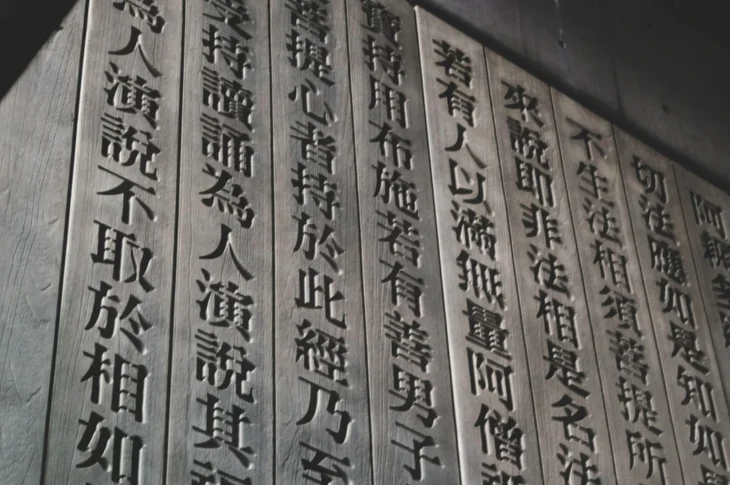 阿耨
切法應如是知如
不生法相須菩提所
來說即非法相是名法
若有人以滿無量阿僧
寶持用布施若有善男子
菩提心者持於此經乃至
受持讀誦為人演說其
為人演說不取於相如